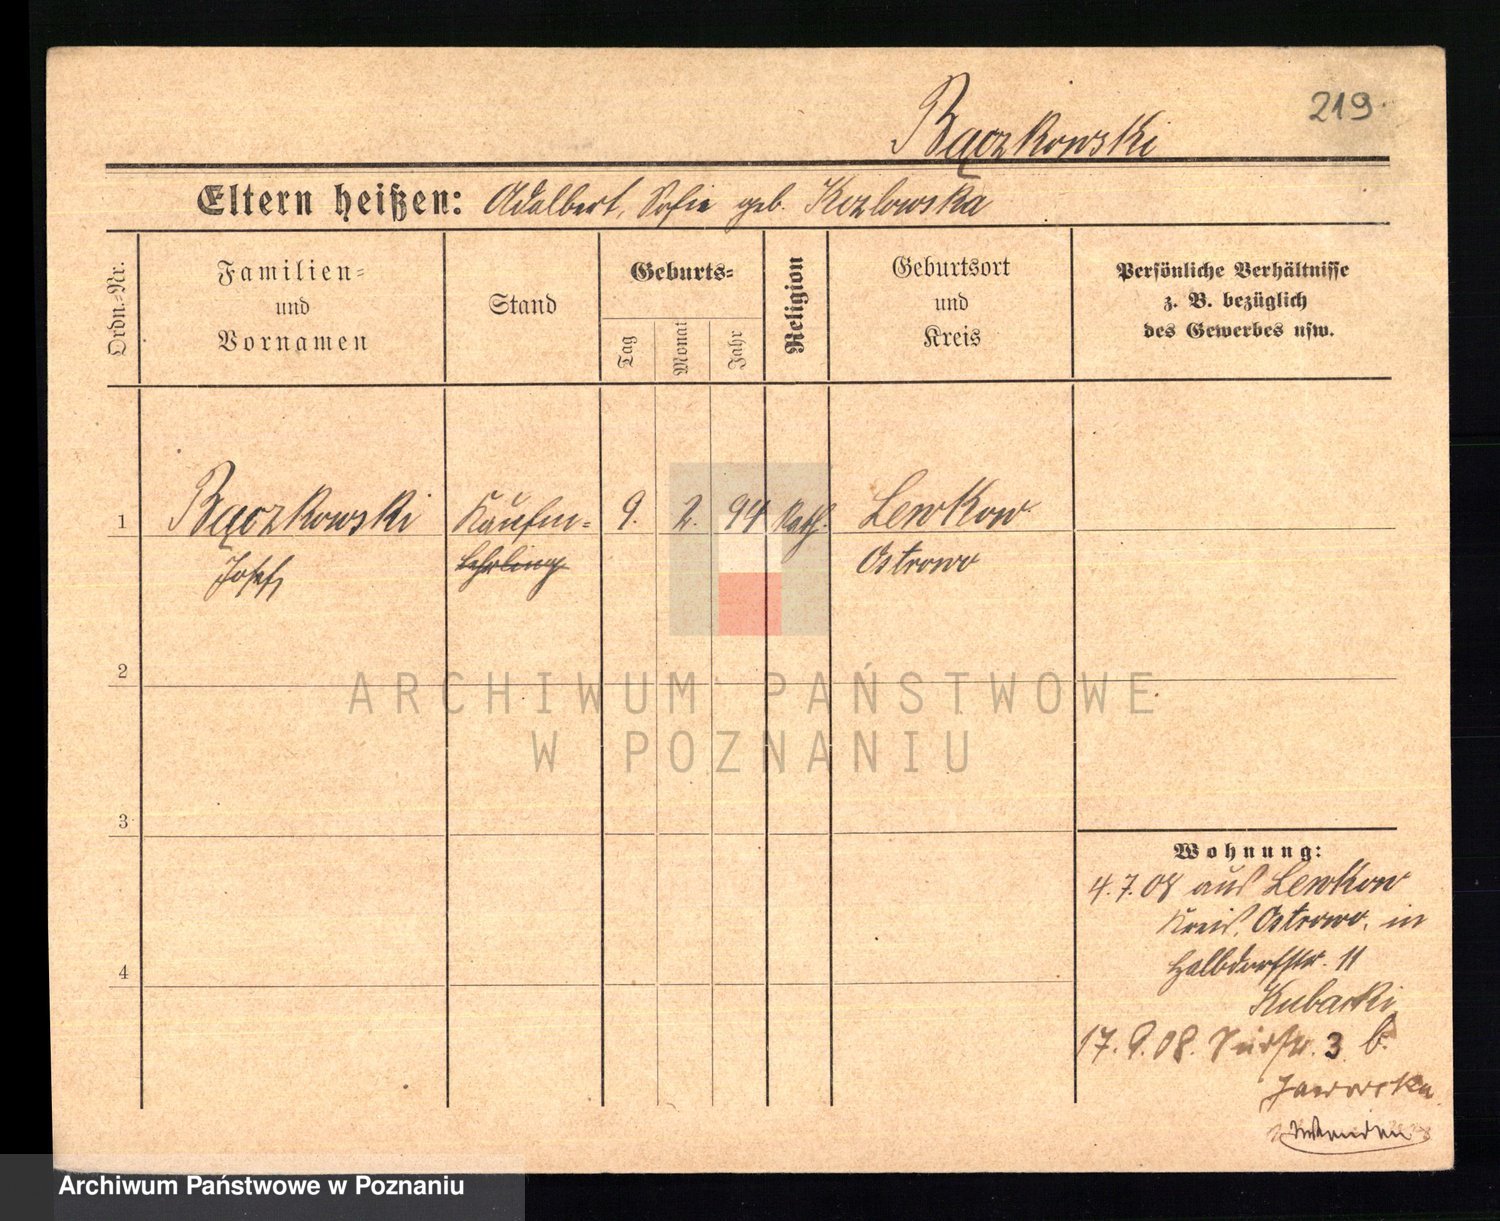 219.
Bączkowski
Eltern heißen: Adalbert, Sofie geb. Kozlowska
Ordn.-Nr.
Familien-
und
Vornamen
Stand
Geburts-
Tag
Monat
Jahr
Religion
Geburtsort
und
Kreis
Persönliche Verhältnisse
z. B. bezüglich
des Gewerbes usw.
1
Bączkowski
Josef
Kaufm-
lehrling
9. 2. 94 Kath.
Lewkow
Ostrowo
2
3
4
ARCHIWUM PAŃSTWOWE
W POZNANIU
Wohnung:
4.7.08 aus Lewkow
Kreis Ostrowo, in
Halbdorfstr. 11
Kubacki
17.9.08. 3 b.
Jaworska
Archiwum Państwowe w Poznaniu